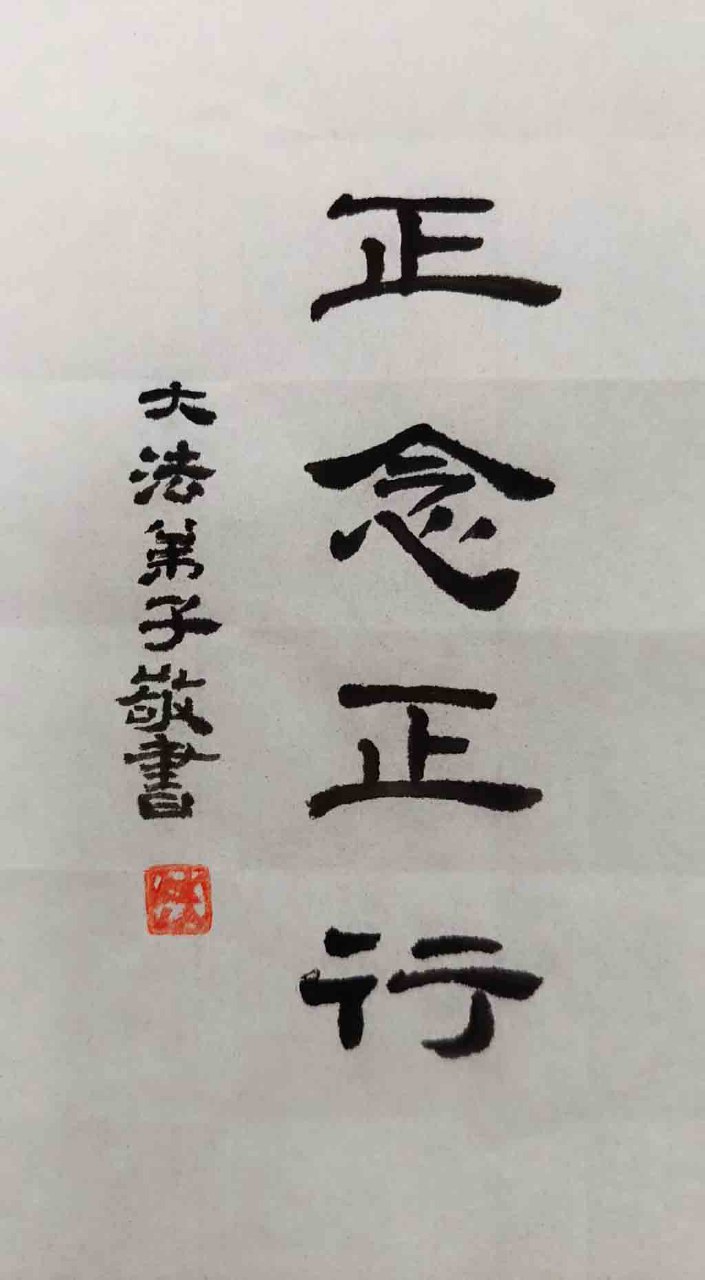 正念正行
大法弟子敬書